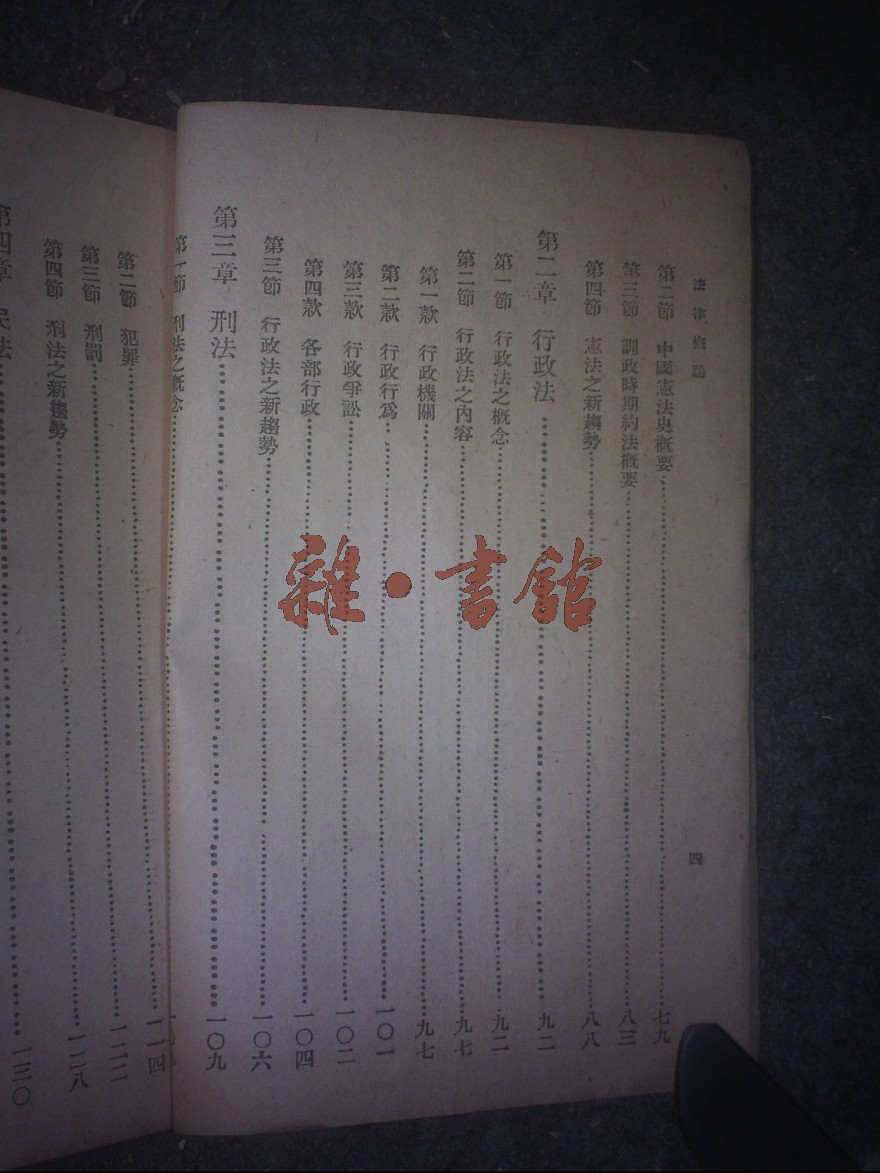 法律概論
四
第二節 中國憲法史概要 七九
第三節 訓政時期約法概要 八三
第四節 憲法之新趨勢 八八
第二章 行政法 九二
第一節 行政法之概念 九二
第二節 行政法之內容 九七
第一款 行政機關 九七
第二款 行政行爲 一〇一
第三款 行政爭訟 一〇二
第四款 各部行政 一〇四
第三節 行政法之新趨勢 一〇六
第三章 刑法 一〇九
第一節 刑法之概念
第二節 犯罪 一一四
第三節 刑罰 一二二
第四節 刑法之新趨勢 一二八
第四章 民法 一三〇
雜·書館